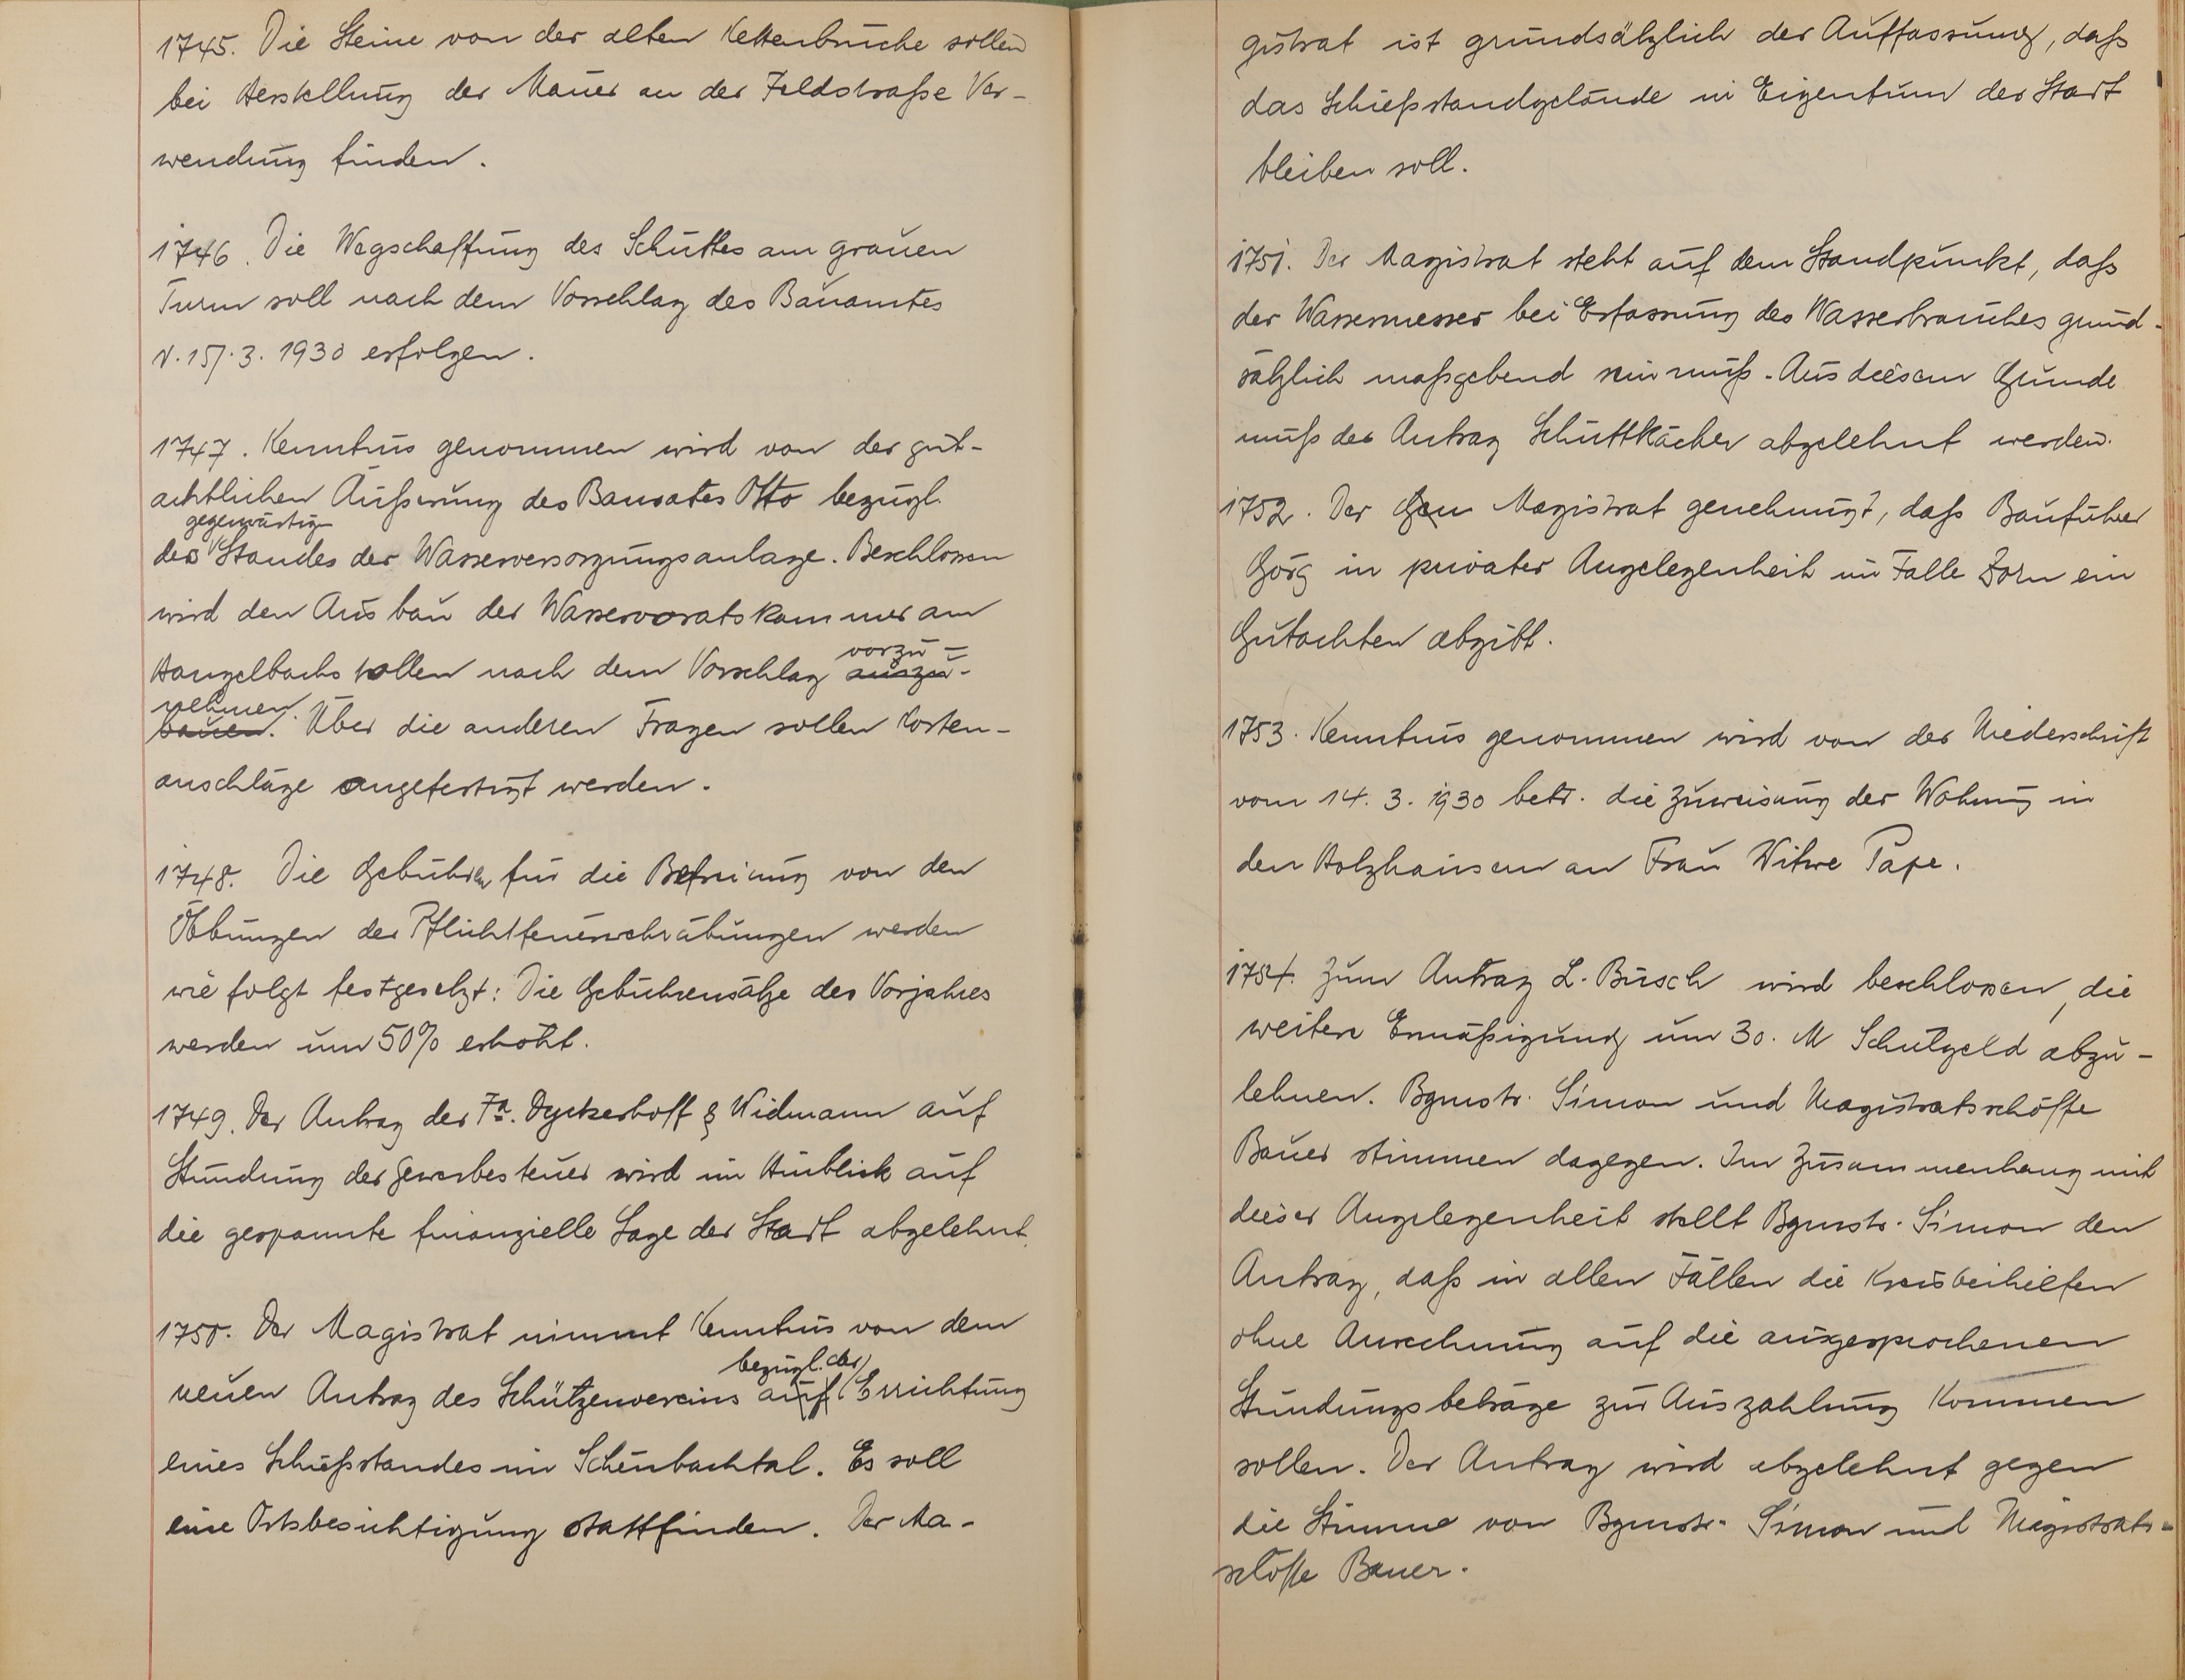 1745. Die Steine von der alten Kettenbrücke sollen
bei Herstellung der Mauer an der Feldstraße Ver-
wendung finden.
1746. Die Wegschaffung des Schuttes am grauen
Turm soll nach dem Vorschlag des Bauamtes
v. 15.3.1930 erfolgen.
1747. Kenntnis genommen wird von der gut-
achtlichen Äußerung des Baurates Otto bezügl.
gegenwärtig
des Standes der Wasserversorgungsanlage. Beschlossen
wird den Ausbau der Wasservorratskammer am
vorzu-
Hangelbachsstollen nach dem Vorschlag auszu-
nehmen.
bauen. Über die anderen Fragen sollen Kosten-
anschläge angefertigt werden.
1748. Die Gebühren für die Befreiung von den
Übungen der Pflichtfeuerwehrübungen werden
wie folgt festgesetzt: Die Gebührensätze des Vorjahres
werden um 50% erhöht.
1749. Der Antrag der Fa. Dyckerhoff & Widmann auf
Stundung der Gewerbesteuer wird im Hinblick auf
die gespannte finanzielle Lage der Stadt abgelehnt.
1750. Der Magistrat nimmt Kenntnis von dem
bezügl. der
neuen Antrag des Schützenvereins auf Errichtung
eines Schießstandes im Scheubachtal. Es soll
eine Ortsbesichtigung stattfinden. Der Ma-
gistrat ist grundsätzlich der Auffassung, daß
das Schießstandgelände in Eigentum der Stadt
bleiben soll.
1751. Der Magistrat steht auf dem Standpunkt, daß
der Wassermesser bei Erfassung des Wasserbrauches grund-
sätzlich maßgebend sein muß. Aus diesem Grunde
muß der Antrag Schuttkächer abgelehnt werden.
1752. Der Magistrat genehmigt, daß Bauführer
Görg in privater Angelegenheit im Falle Zorn ein
Gutachten abgibt.
1753. Kenntnis genommen wird von der Niederschrift
vom 14.3.1930 betr. die Zuweisung der Wohnung in
den Holzhäusern an Frau Witwe Pape.
1754. Zum Antrag L. Busch wird beschlossen, die
weitere Ermäßigung um 30. M Schulgeld abzu-
lehnen. Bgmstr. Simon und Magistratsschöffe
Bauer stimmen dagegen. Im Zusammenhang mit
dieser Angelegenheit stellt Bgmstr. Simon den
Antrag, daß in allen Fällen die Kreisbeihilfen
ohne Anrechnung auf die ausgesprochenen
Stundungsbeträge zur Auszahlung kommen
sollen. Der Antrag wird abgelehnt gegen
die Stimme von Bgmstr. Simon und Magistrats-
schöffe Bauer.